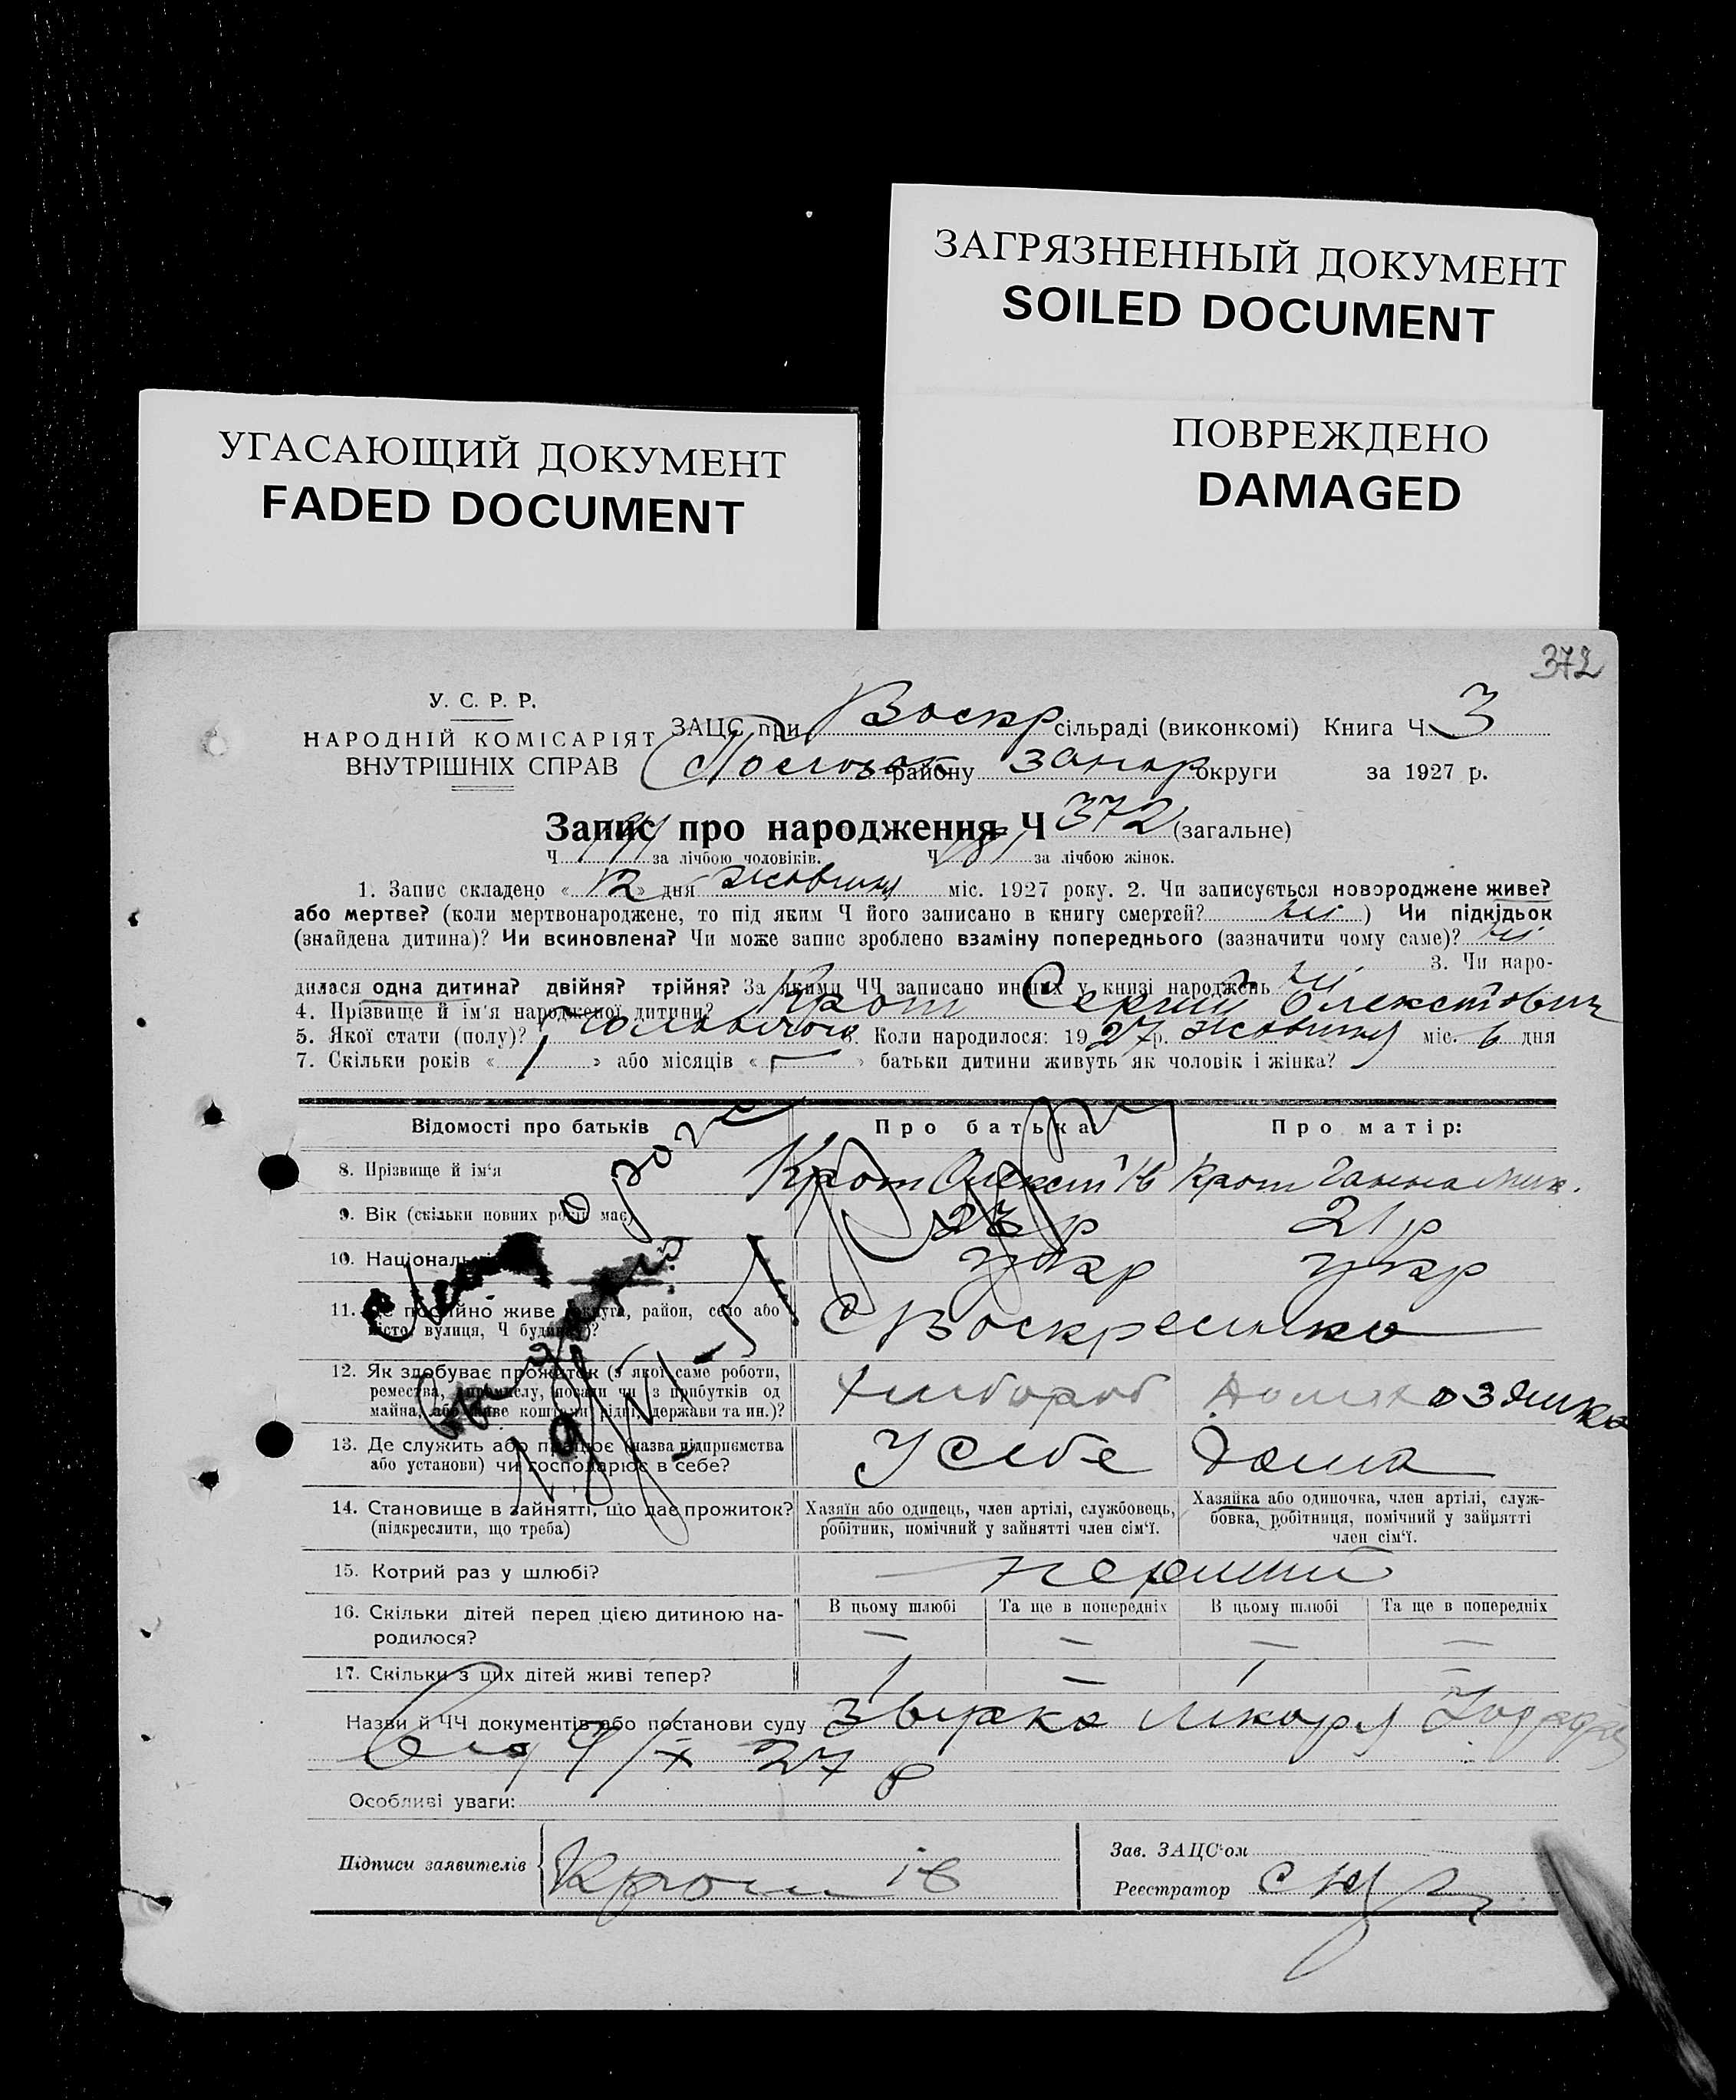 ЗАГРЯЗНЕННЫЙ ДОКУМЕНТ
SOILED DOCUMENT
УГАСАЮЩИЙ ДОКУМЕНТ
FADED DOCUMENT
ПОВРЕЖДЕНО
DAMAGED
372
У. С. Р. Р.
НАРОДНІЙ КОМІСАРІЯТ
ВНУТРІШНІХ СПРАВ
ЗАЦС при Воскр сільраді (виконкомі) Книга Ч. 3
району Запор округи за 1927 р.
Запис про народження Ч 372 (загальне)
Ч 191 за лічбою чоловіків. Ч 181 за лічбою жінок.
1. Запис складено « 12 » дня жовтня міс. 1927 року. 2. Чи записується новороджене живе?
або мертве? (коли мертвонароджене, то під яким Ч його записано в книгу смертей? ні ) Чи підкідьок
(знайдена дитина)? Чи всиновлена? Чи може запис зроблено взаміну попереднього (зазначити чому саме)? ні
3. Чи наро-
дилася одна дитина? двійня? трійня? За якими ЧЧ записано инших у книзі народжень ні
4. Прізвище й ім'я народженої дитини? Крот Сергій Олексійович
5. Якої стати (полу)? чоловічої 6. Коли народилося: 1927 р. жовтня міс. 6 дня
7. Скільки років « 1 » або місяців « — » батьки дитини живуть як чоловік і жінка?
Відомості про батьків Про батька Про матір:
8. Прізвище й ім'я Крот Олексій Ів Крот Ганна Мик.
9. Вік (скільки повних років має) 23 р 21 р
10. Національність укр укр
11. Де постійно живе (округа, район, село або
місто, вулиця, Ч будинку)? С Воскресенка
12. Як здобуває прожиток (з якої саме роботи,
ремества, промислу, посади чи з прибутків од
майна, або живе коштами рідні, держави та ин.)? Хлібороб Домохозяйка
13. Де служить або працює (назва підприємства
або установи) чи господарює в себе? У себе Дома
14. Становище в зайнятті, що дає прожиток?
(підкреслити, що треба)
Хазяїн або одинець, член артілі, службовець,
робітник, помічний у зайнятті член сім'ї.
Хазяйка або одиночка, член артілі, служ-
бовка, робітниця, помічний у зайнятті
член сім'ї.
15. Котрий раз у шлюбі? перший
16. Скільки дітей перед цією дитиною на-
родилося?
В цьому шлюбі Та ще в попередніх В цьому шлюбі Та ще в попередніх
— — — —
17. Скільки з цих дітей живі тепер? 1 — 1 —
Назви й ЧЧ документів або постанови суду Звирка лікаря
від 9/X 27 р
Особливі уваги:
Підписи заявителів Крот Ів
Зав. ЗАЦС'ом
Реєстратор